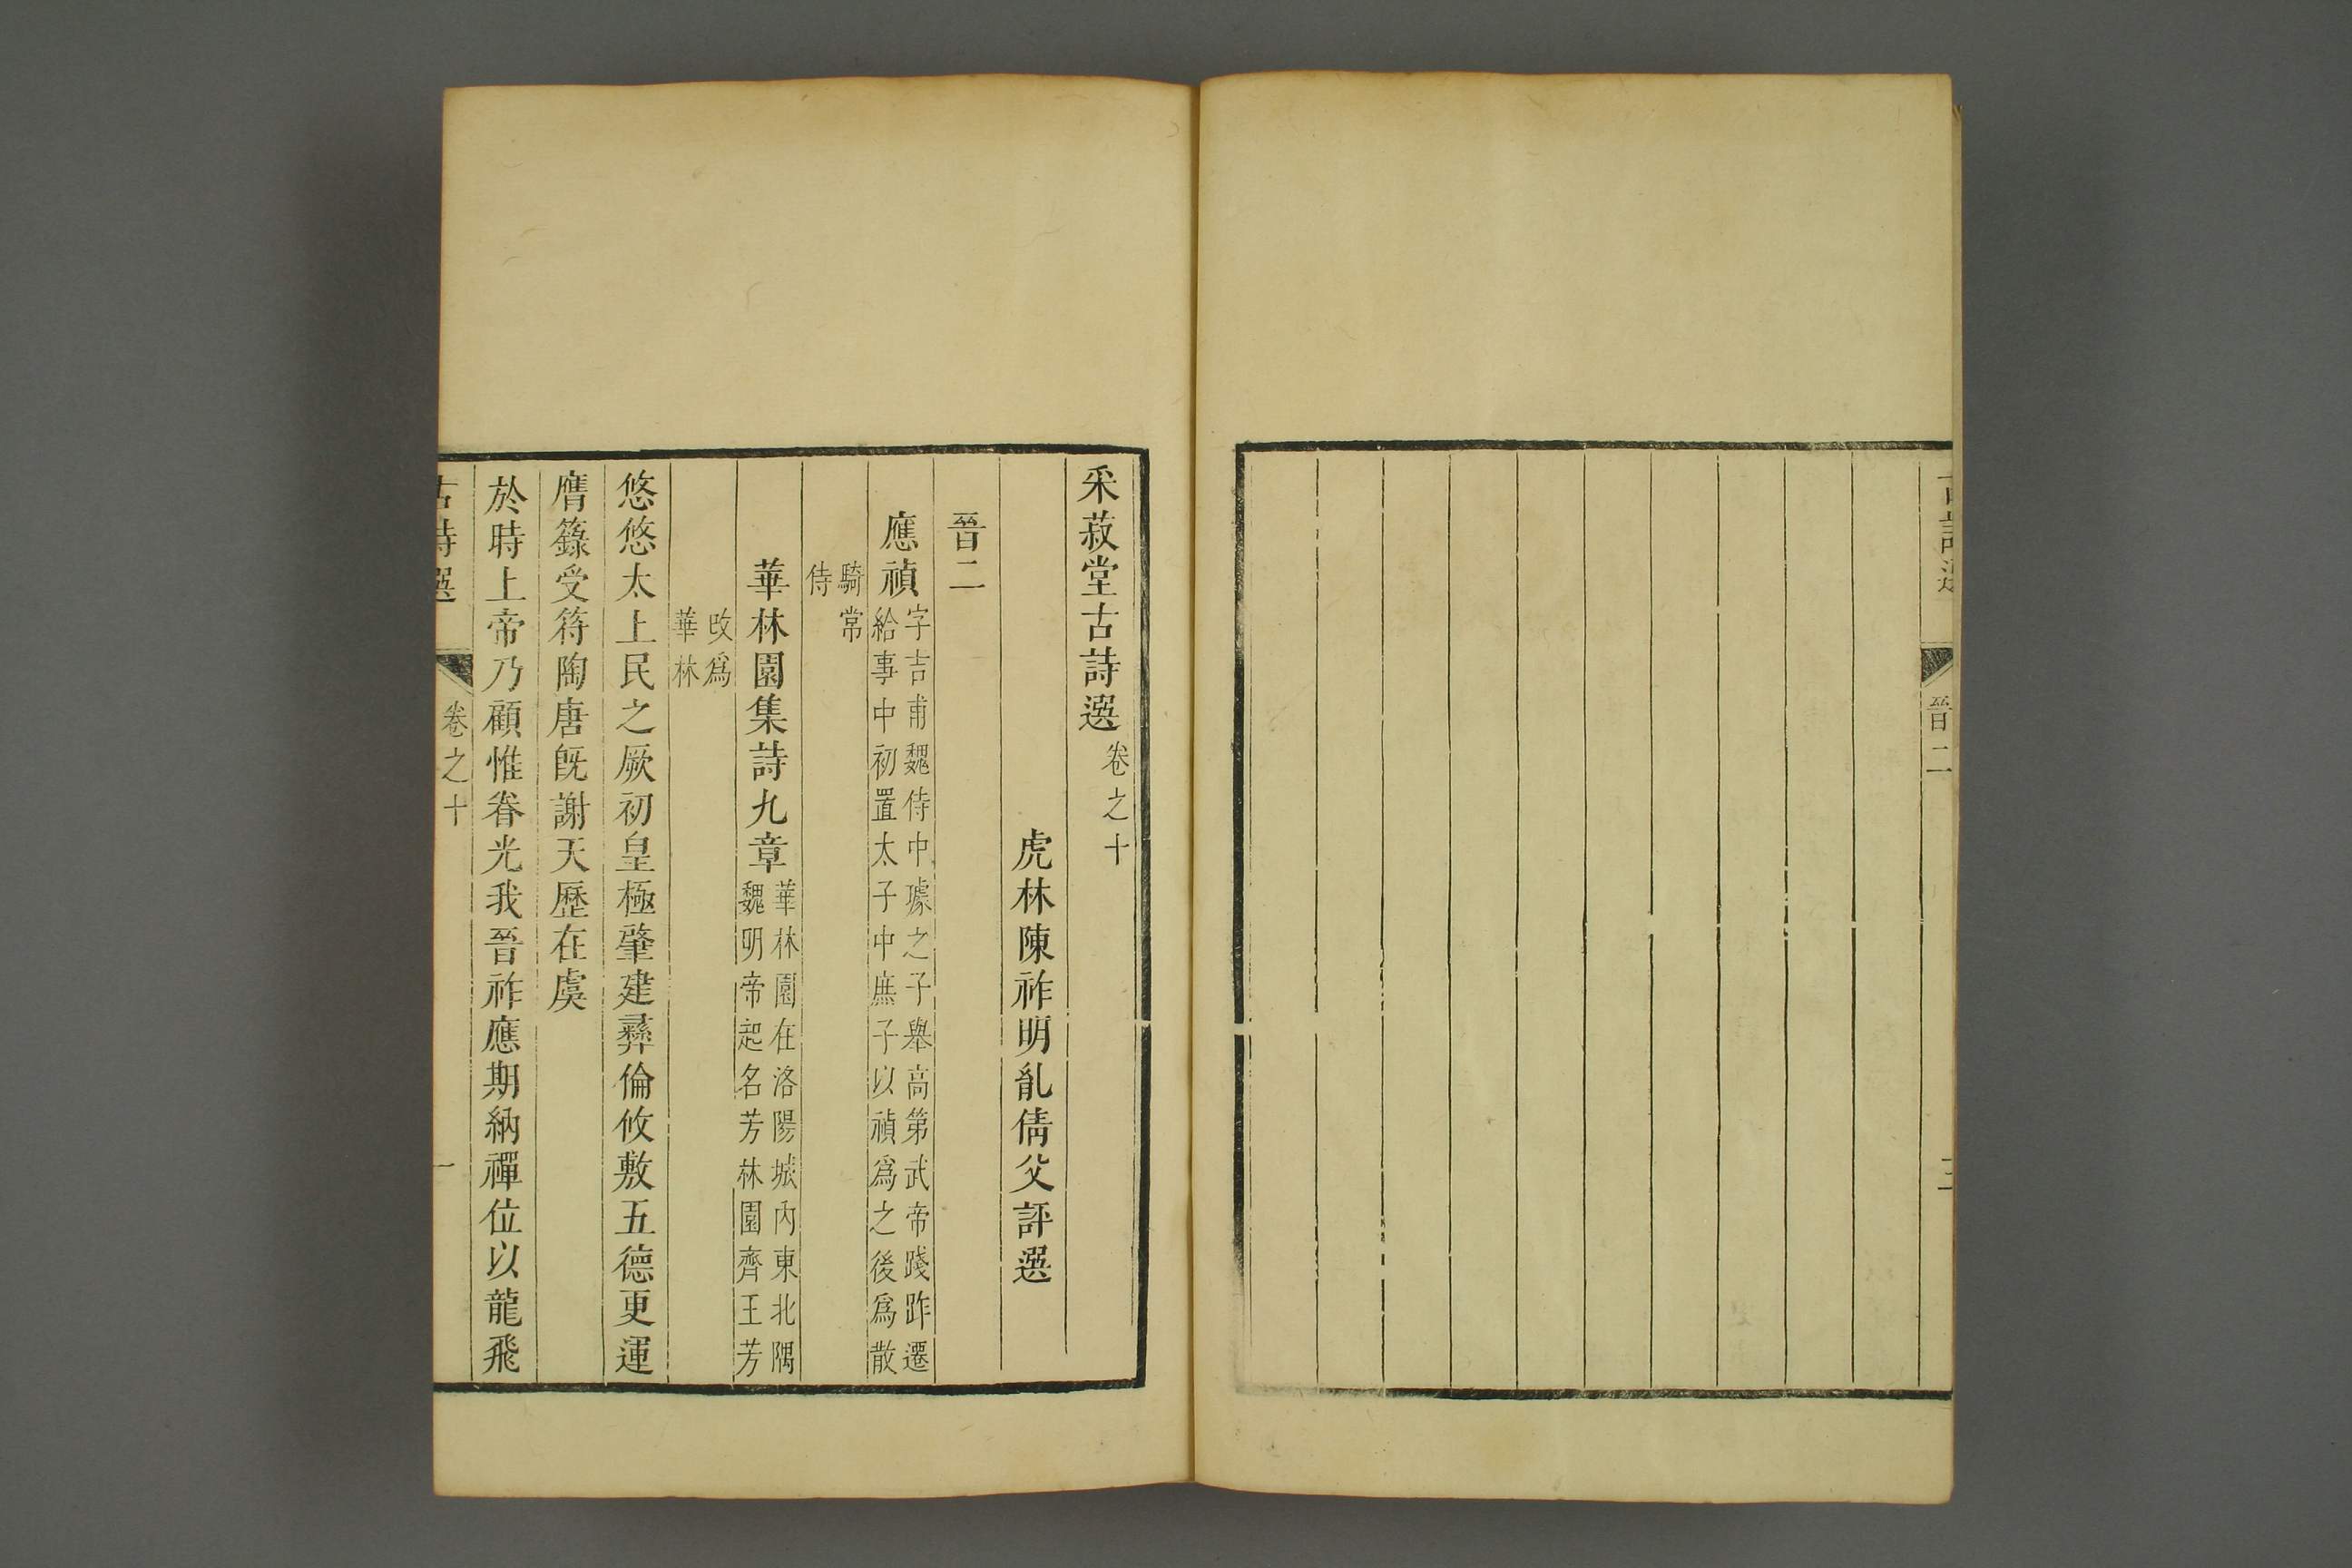 晉二
采菽堂古詩選卷之十
虎林陳祚明胤倩父評選
晉二
應禎字吉甫魏侍中璩之子舉高第武帝踐阼遷
給事中初置太子中庶子以禎爲之後爲散
騎常
侍
華林園集詩九章華林園在洛陽城內東北隅
魏明帝起名芳林園齊王芳
改爲
華林
悠悠太上民之厥初皇極肇建彝倫攸敷五德更運
膺籙受符陶唐旣謝天歷在虞
於時上帝乃顧惟眷光我晉祚應期納禪位以龍飛
古詩選 卷之十 一